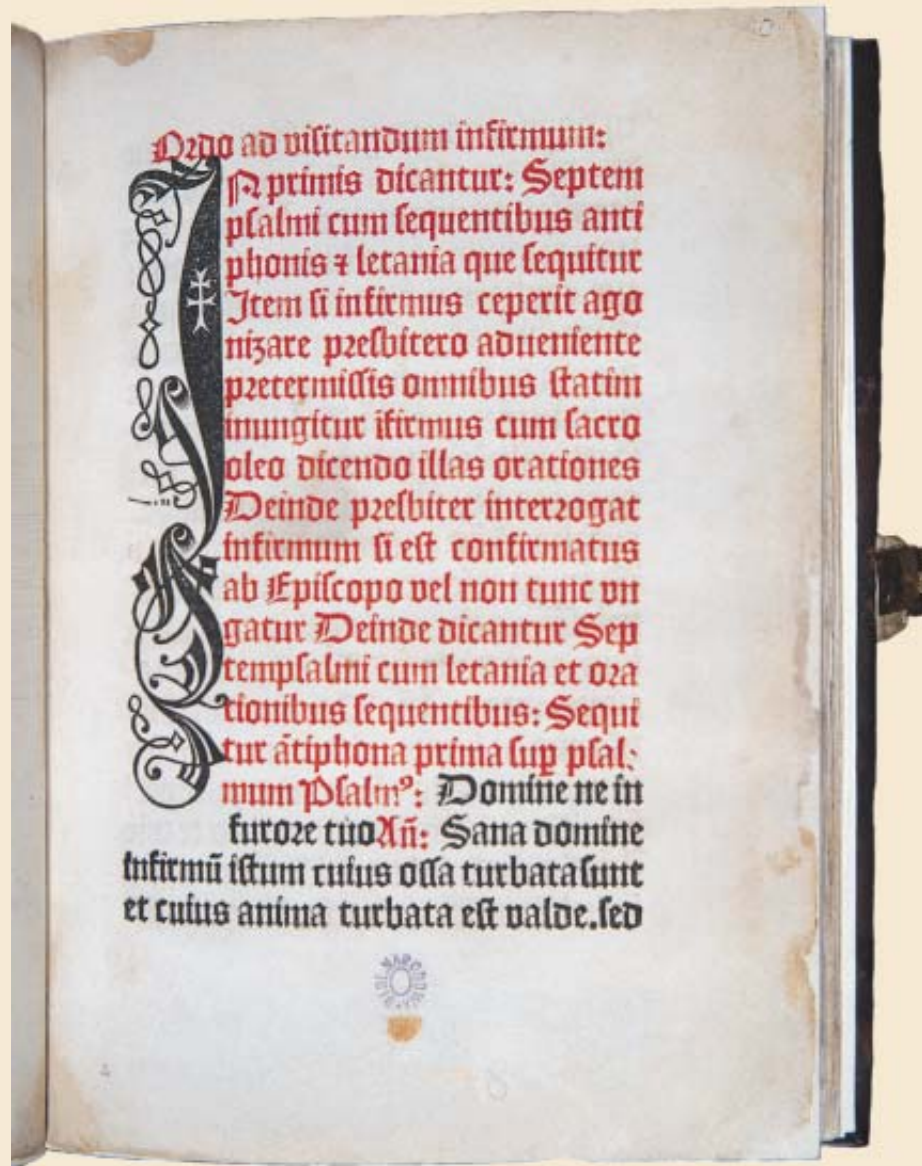 Ordo ad visitandum infirmum:
IN primis dicantur: Septem
psalmi cum sequentibus anti
phonis ⁊ letania que sequitur
Item si infirmus ceperit ago
nizare presbitero adueniente
pretermissis omnibus statim
inungitur īfirmus cum sacro
oleo dicendo illas orationes
Deinde presbiter interrogat
infirmum si est confirmatus
ab Episcopo vel non tunc vn
gatur Deinde dicantur Sep
tempsalmi cum letania et ora
tionibus sequentibus: Sequi
tur ātiphona prima suꝑ psal:
mum Psalmꝰ: Domine ne in
furore tuo Añ: Sana domine
infirmū istum cuius ossa turbata sunt
et cuius anima turbata est valde. sed